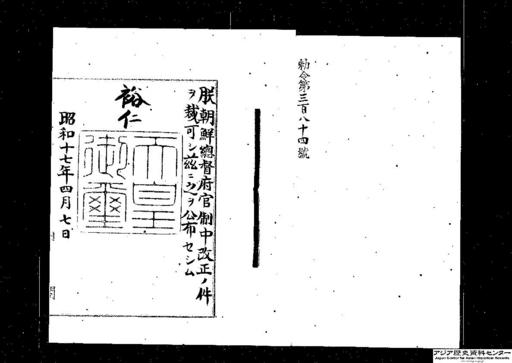 勅令第三百八十四號
朕朝鮮總督府官制中改正ノ件
ヲ裁可シ茲ニ之ヲ公布セシム
裕仁
天皇
御璽
昭和十七年四月七日
アジア歴史資料センター
Japan Center for Asian Historical Records